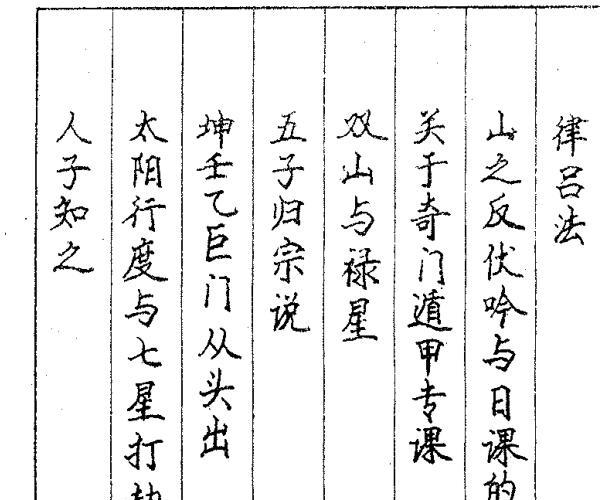 律吕法
山之反伏吟与日课的
关于奇门遁甲专课
双山与禄星
五子归宗说
坤壬乙巨门从头出
太阳行度与七星打劫
人子知之